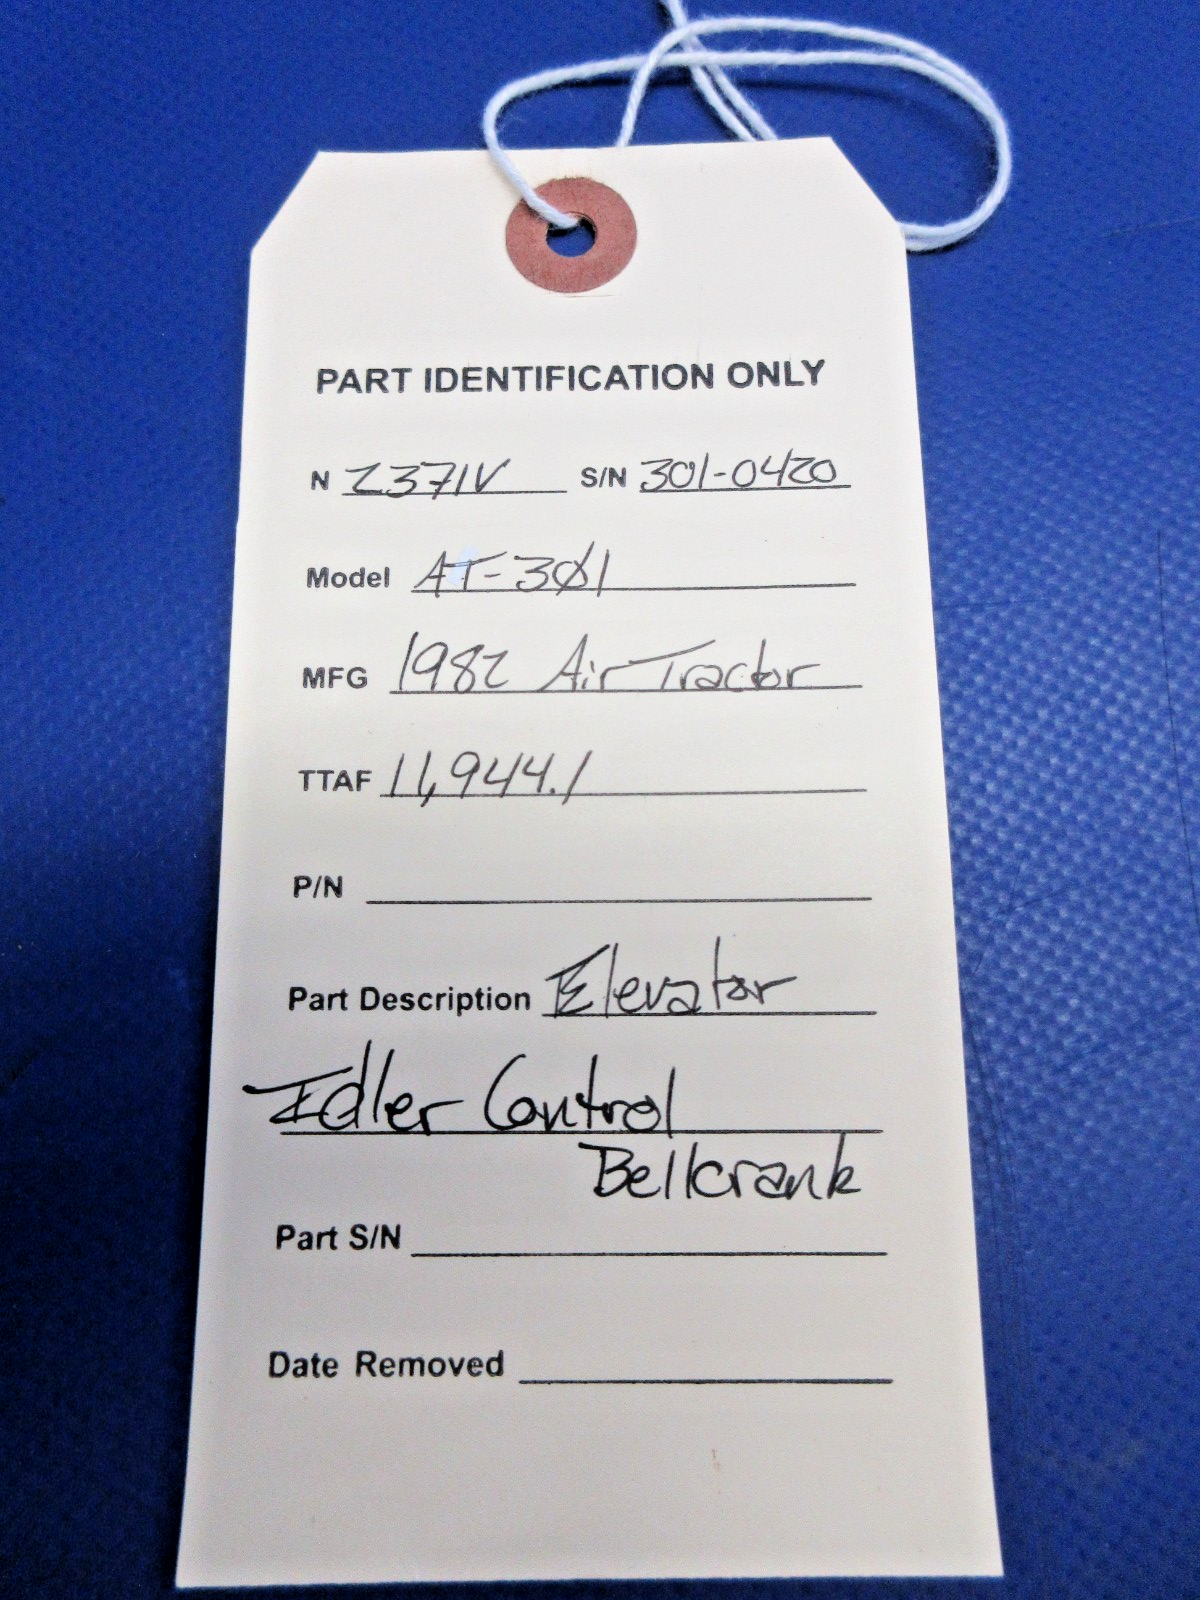 PART IDENTIFICATION ONLY
N 2371V S/N 301-0420
Model AT-301
MFG 1982 Air Tractor
TTAF 11,944.1
P/N
Part Description Elevator
Idler Control
Bellcrank
Part S/N
Date Removed